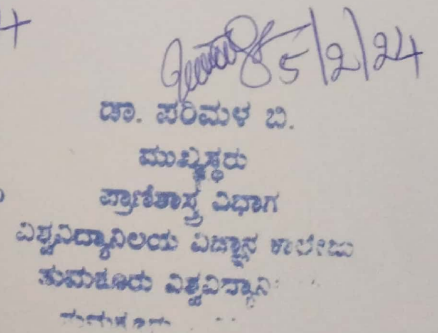 5/2/24
ಡಾ. ಪರಿಮಳ ಬಿ.
ಮುಖ್ಯಸ್ಥರು
ಪ್ರಾಣಿಶಾಸ್ತ್ರ ವಿಭಾಗ
ವಿಶ್ವವಿದ್ಯಾನಿಲಯ ವಿಜ್ಞಾನ ಕಾಲೇಜು
ತುಮಕೂರು ವಿಶ್ವವಿದ್ಯಾನಿ